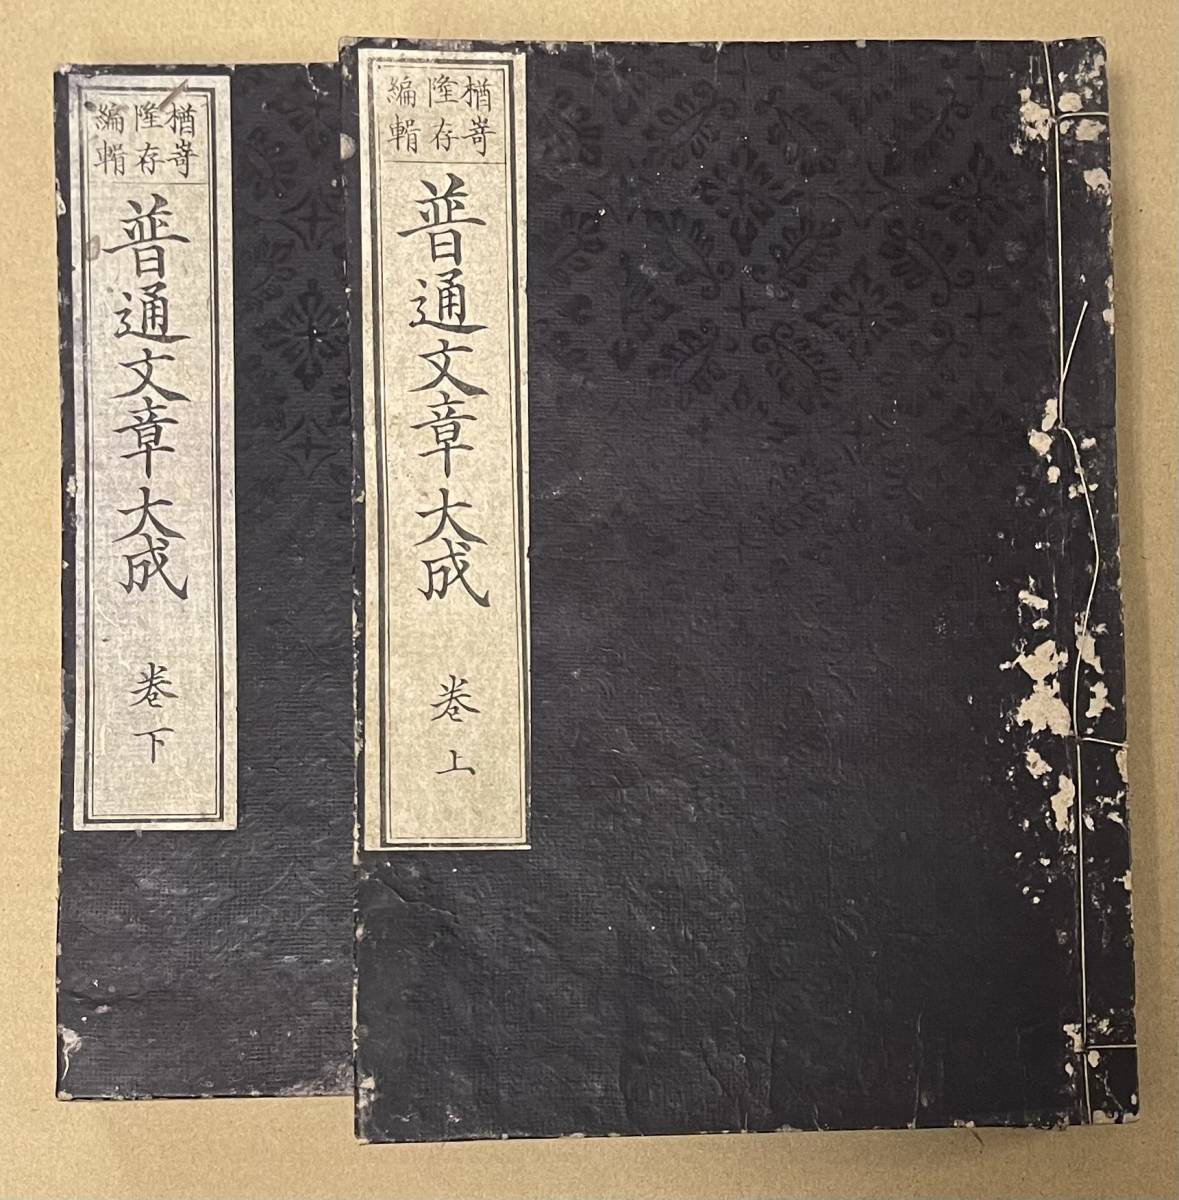 楢嵜
隆存
編輯
普通文章大成 卷上
楢嵜
隆存
編輯
普通文章大成 卷下